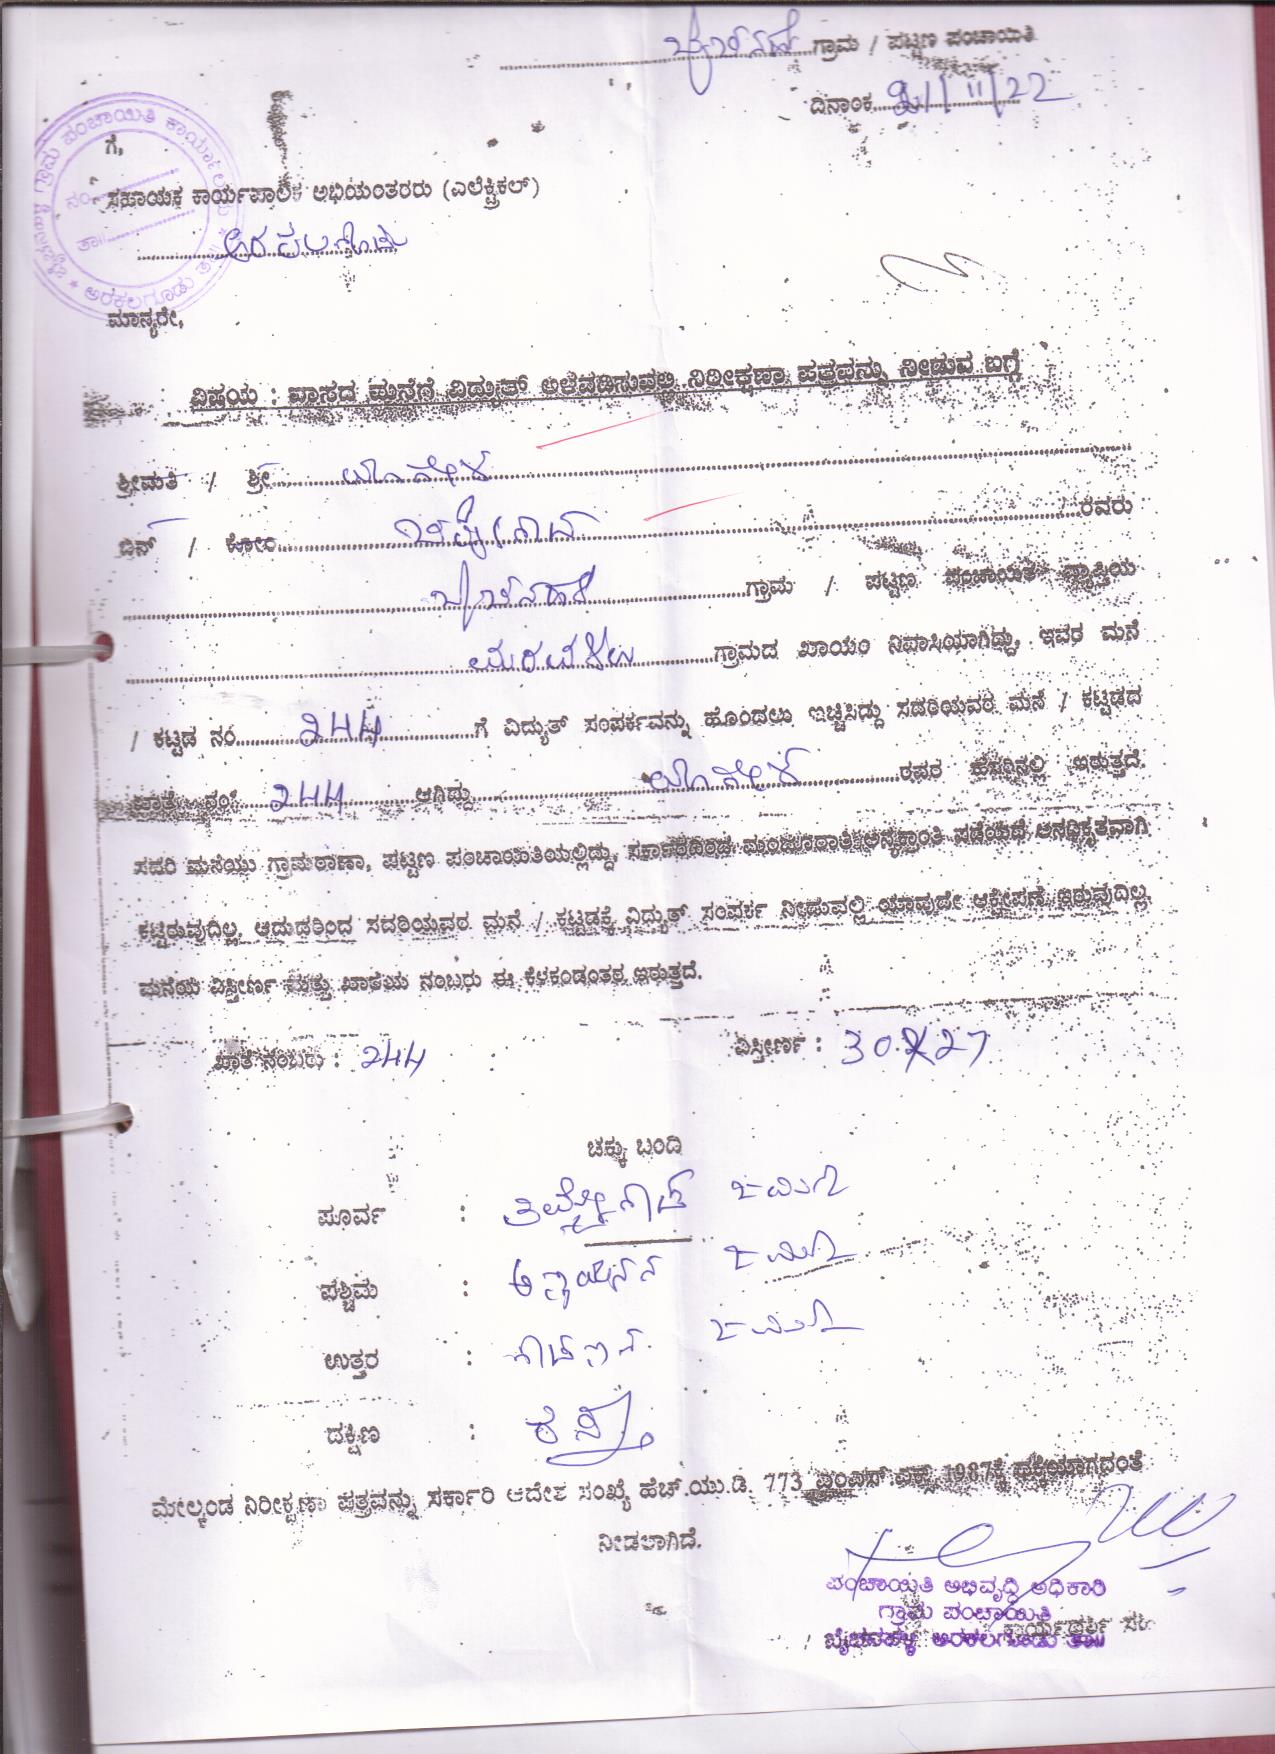 ಗ್ರಾಮ / ಪಟ್ಟಣ ಪಂಚಾಯಿತಿ
ದಿನಾಂಕ 21/11/22
ಗೆ,
ಸಹಾಯಕ ಕಾರ್ಯಪಾಲಕ ಅಭಿಯಂತರರು (ಎಲೆಕ್ಟ್ರಿಕಲ್)
ಮಾನ್ಯರೇ,
ವಿಷಯ : ವಾಸದ ಮನೆಗೆ ವಿದ್ಯುತ್ ಅಳವಡಿಸುವಲ್ಲಿ ನಿರೀಕ್ಷಣಾ ಪತ್ರವನ್ನು ನೀಡುವ ಬಗ್ಗೆ
ಶ್ರೀಮತಿ / ಶ್ರೀ ಯೋಗೇಶ
ಬಿನ್ / ಕೋಂ ರವರು
ಗ್ರಾಮ / ಪಟ್ಟಣ ಪಂಚಾಯಿತಿ ವ್ಯಾಪ್ತಿಯ
ಗ್ರಾಮದ ಖಾಯಂ ನಿವಾಸಿಯಾಗಿದ್ದು, ಇವರ ಮನೆ
/ ಕಟ್ಟಡ ನಂ 244 ಗೆ ವಿದ್ಯುತ್ ಸಂಪರ್ಕವನ್ನು ಹೊಂದಲು ಇಚ್ಚಿಸಿದ್ದು ಸದರಿಯವರ ಮನೆ / ಕಟ್ಟಡದ
ಖಾತೆ ನಂ 244 ಆಗಿದ್ದು ಯೋಗೇಶ ರವರ ಹೆಸರಿನಲ್ಲಿ ಇರುತ್ತದೆ.
ಸದರಿ ಮನೆಯು ಗ್ರಾಮಠಾಣಾ, ಪಟ್ಟಣ ಪಂಚಾಯಿತಿಯಲ್ಲಿದ್ದು, ಸರ್ಕಾರದಿಂದ ಮಂಜೂರಾತಿ ಅನ್ಯಕ್ರಾಂತಿ ಪಡೆಯದೆ ಅನಧಿಕೃತವಾಗಿ
ಕಟ್ಟಿರುವುದಿಲ್ಲ, ಆದುದರಿಂದ ಸದರಿಯವರ ಮನೆ / ಕಟ್ಟಡಕ್ಕೆ ವಿದ್ಯುತ್ ಸಂಪರ್ಕ ನೀಡುವಲ್ಲಿ ಯಾವುದೇ ಆಕ್ಷೇಪಣೆ ಇರುವುದಿಲ್ಲ.
ಮನೆಯ ವಿಸ್ತೀರ್ಣ ಮತ್ತು ಖಾತೆಯ ನಂಬರು ಈ ಕೆಳಕಂಡಂತಿರ ಇರುತ್ತದೆ.
ಖಾತೆ ನಂಬರು : 244 ವಿಸ್ತೀರ್ಣ : 30X27
ಚಕ್ಕು ಬಂದಿ
ಪೂರ್ವ : ತಿಮ್ಮೇಗೌಡ ಜಮೀನು
ಪಶ್ಚಿಮ : ಜಮೀನು
ಉತ್ತರ : ಜಮೀನು
ದಕ್ಷಿಣ : ರಸ್ತೆ
ಮೇಲ್ಕಂಡ ನಿರೀಕ್ಷಣಾ ಪತ್ರವನ್ನು ಸರ್ಕಾರಿ ಆದೇಶ ಸಂಖ್ಯೆ ಹೆಚ್.ಯು.ಡಿ. 773 ಎಂ.ಎನ್.ಎಕ್ಸ್ 1987ಕ್ಕೆ ಧಕ್ಕೆಯಾಗದಂತೆ
ನೀಡಲಾಗಿದೆ.
ಪಂಚಾಯಿತಿ ಅಭಿವೃದ್ಧಿ ಅಧಿಕಾರಿ
ಗ್ರಾಮ ಪಂಚಾಯಿತಿ
ಬೈಚನಹಳ್ಳಿ ಅರಕಲಗೂಡು ತಾ||